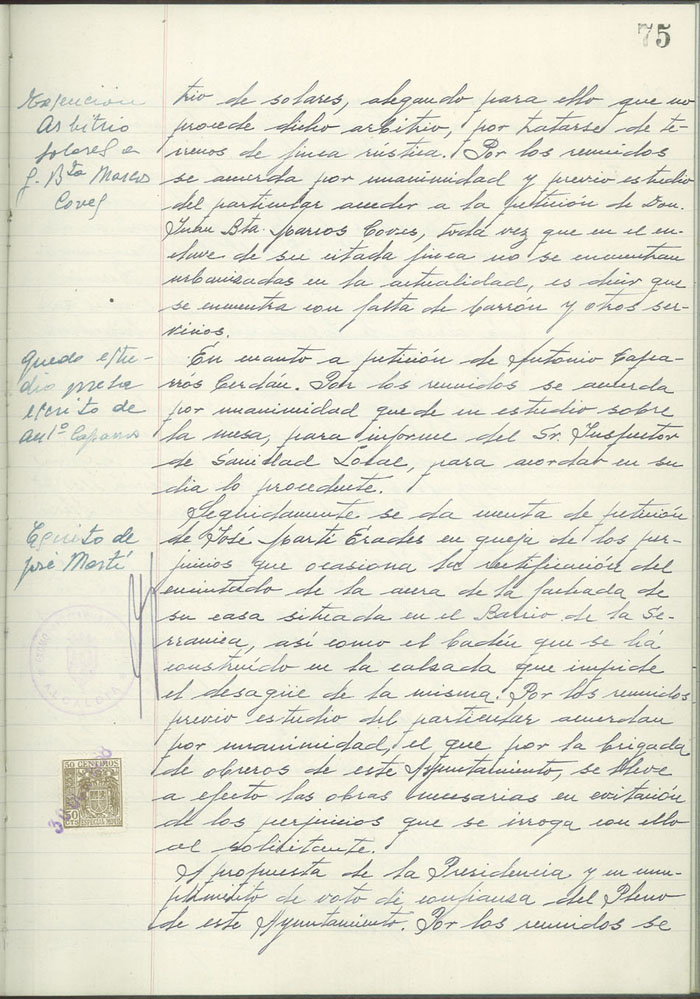 75
Exención
Arbitrio
solares a
J. Bta Marcos
Coves
trio de solares, alegando para ello que no
procede dicho arbitrio, por tratarse de te-
rrenos de finca rústica. Por los reunidos
se acuerda por unanimidad y previo estudio
del particular acceder a la petición de Don.
Juan Bta. Marcos Coves, toda vez que en el en-
clave de su citada finca no se encuentran
urbanizadas en la actualidad, es decir que
se encuentra con falta de Carrón y otros ser-
vicios.
Queda estu-
dio mesa
escrito de
Antº Caparros
En cuanto a petición de Antonio Capa-
rros Cerdán. Por los reunidos se acuerda
por unanimidad quede en estudio sobre
la mesa, para informe del Sr. Inspector
de Sanidad Local, para acordar en su
dia lo procedente.
Escrito de
José Martí
Seguidamente se da cuenta de petición
de José Martí Erades en queja de los per-
juicios que ocasiona la rectificación del
encintado de la acera de la fachada de
su casa situada en el Barrio de la Se-
rranica, así como el badén que se há
construído en la calsada que impide
el desagüe de la misma. Por los reunidos
previo estudio del particular acuerdan
por unanimidad, el que por la brigada
de obreros de este Ayuntamiento, se lleve
a efecto las obras necesarias en evitación
de los perjuicios que se irroga con ello
al solicitante.
A propuesta de la Presidencia y en cum-
plimiento de voto de confianza del Pleno
de este Ayuntamiento. Por los reunidos se
ALCALDIA
50 CENTIMOS
50
CTS ESPECIAL MOVIL